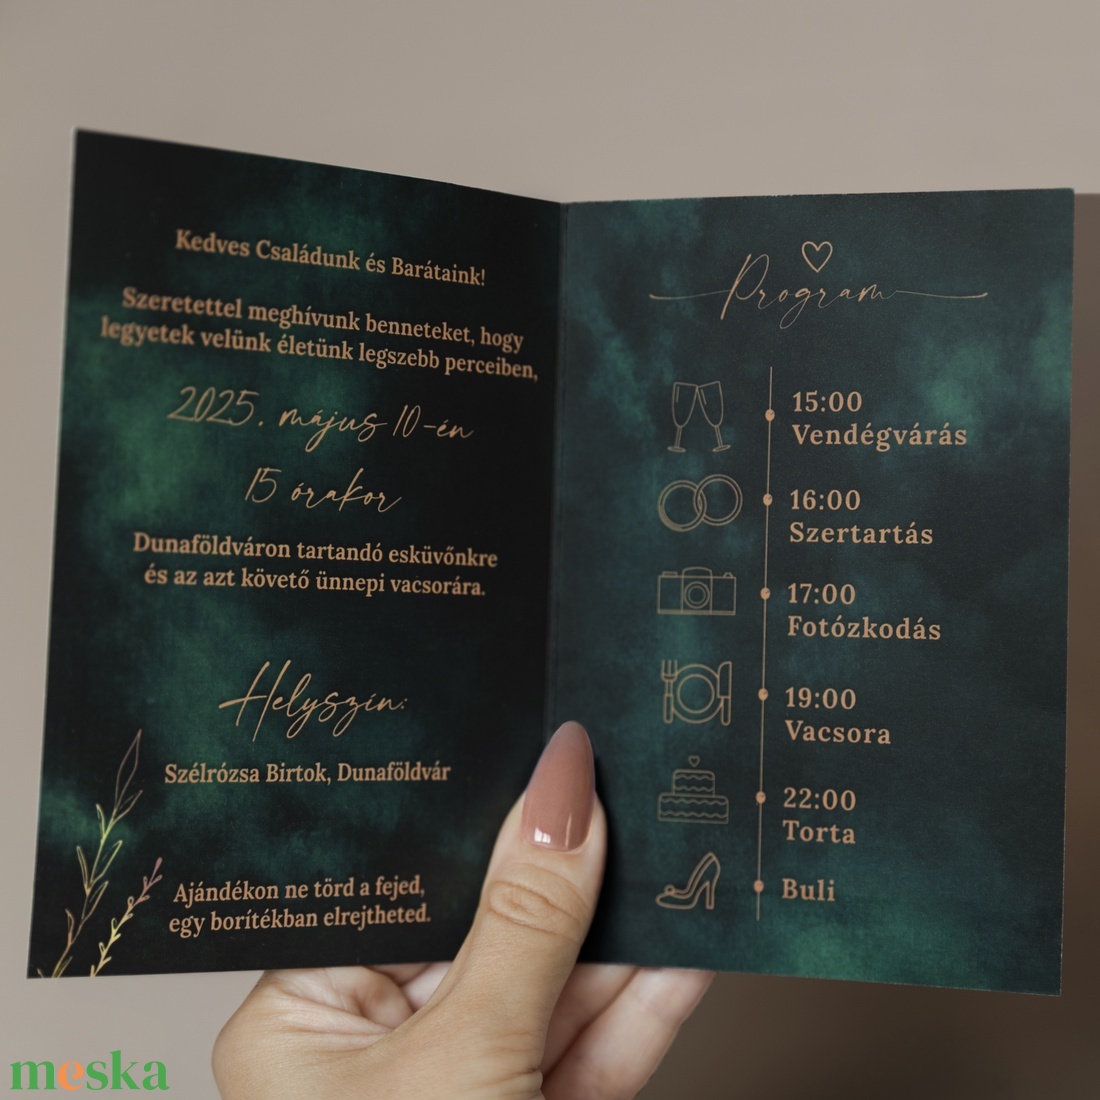 Kedves Családunk és Barátaink!
Szeretettel meghívunk benneteket, hogy
legyetek velünk életünk legszebb perceiben,
2025. május 10-én
15 órakor
Dunaföldváron tartandó esküvőnkre
és az azt követő ünnepi vacsorára.
Helyszín:
Szélrózsa Birtok, Dunaföldvár
Ajándékon ne törd a fejed,
egy borítékban elrejtheted.
Program
15:00
Vendégvárás
16:00
Szertartás
17:00
Fotózkodás
19:00
Vacsora
22:00
Torta
Buli
meska